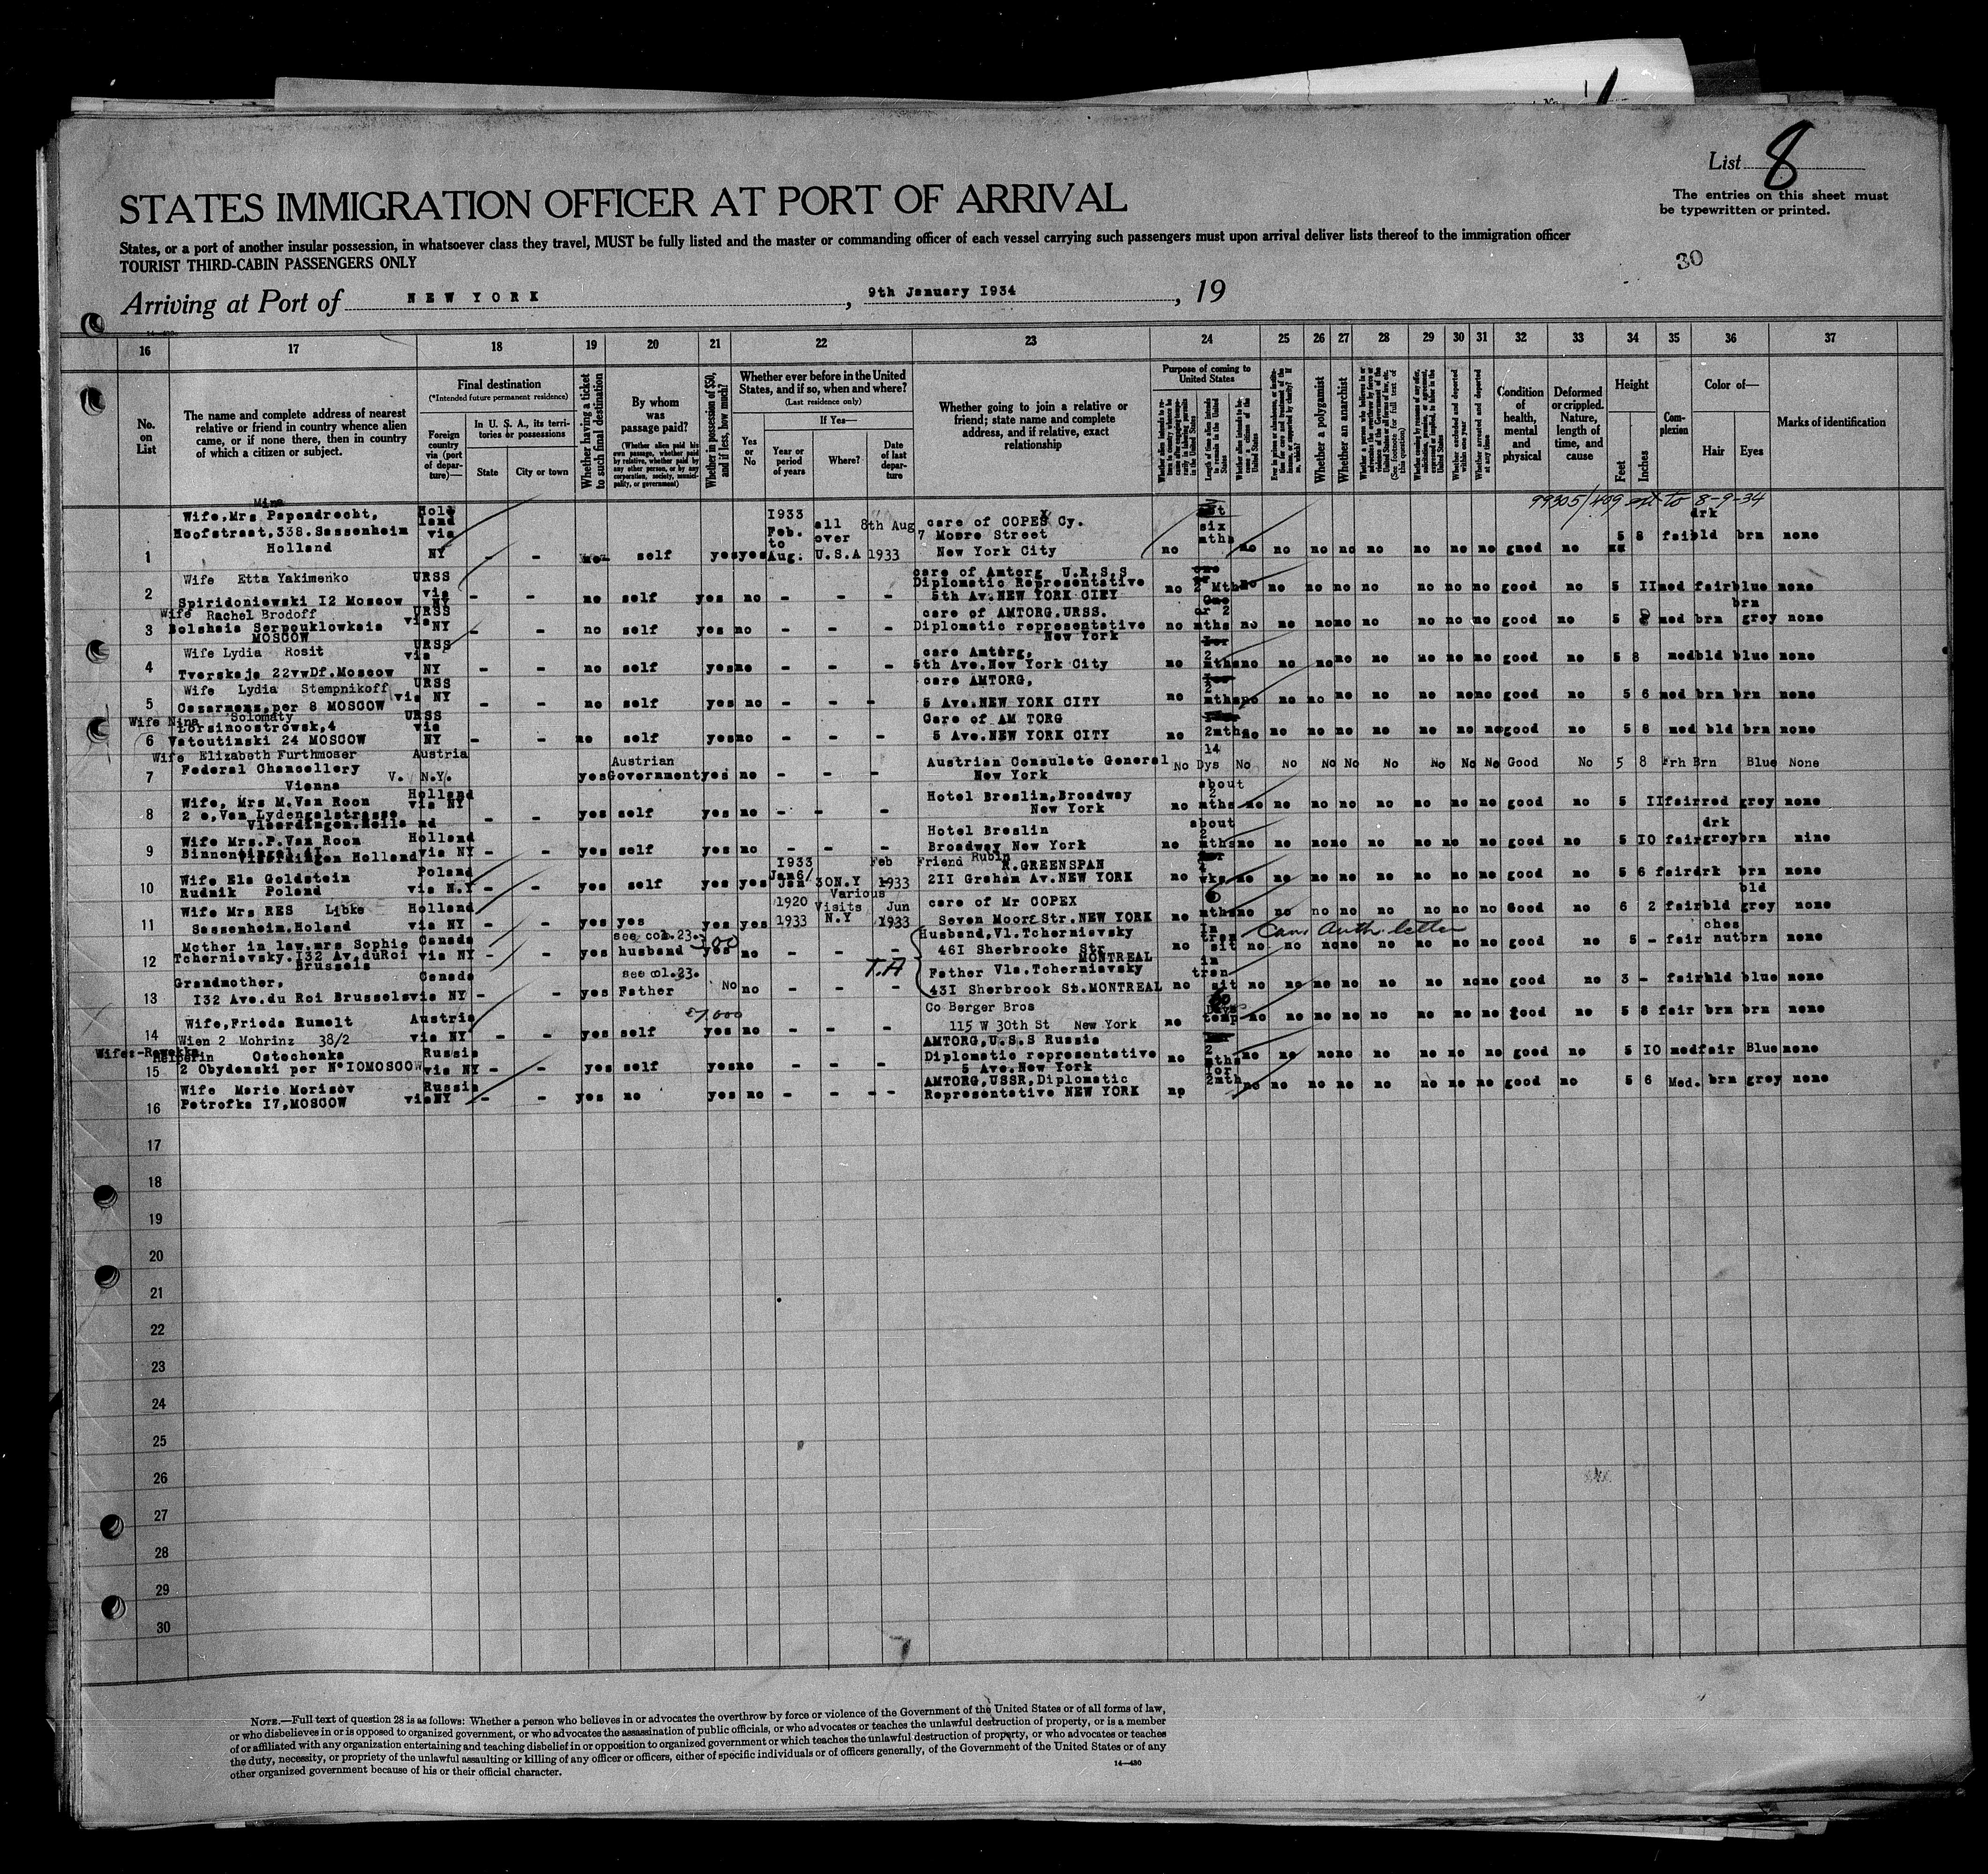 List 8
The entries on this sheet must
be typewritten or printed.
STATES IMMIGRATION OFFICER AT PORT OF ARRIVAL
States, or a port of another insular possession, in whatsoever class they travel, MUST be fully listed and the master or commanding officer of each vessel carrying such passengers must upon arrival deliver lists thereof to the immigration officer
TOURIST THIRD-CABIN PASSENGERS ONLY
30
Arriving at Port of NEW YORK, 9th January 1934, 19
16 17 18 19 20 21 22 23 24 25 26 27 28 29 30 31 32 33 34 35 36 37
No. on List
The name and complete address of nearest
relative or friend in country whence alien
came, or if none there, then in country
of which a citizen or subject.
Final destination
(*Intended future permanent residence)
Foreign country via (port of departure)—
In U. S. A., its territories or possessions
State
City or town
Whether having a ticket to such final destination
By whom was passage paid?
(Whether alien paid his own passage, whether paid by relative, whether paid by any other person, or by any corporation, society, municipality, or government)
Whether in possession of $50, and if less, how much?
Whether ever before in the United States, and if so, when and where?
(Last residence only)
Yes or No
If Yes—
Year or period of years
Where?
Date of last departure
Whether going to join a relative or
friend; state name and complete
address, and if relative, exact
relationship
Purpose of coming to United States
Length of time alien intends to remain in the United States
Whether a polygamist
Whether an anarchist
(See footnote for full text of this question)
Whether excluded and deported within one year
Whether arrested and deported at any time
Condition of health, mental and physical
Deformed or crippled. Nature, length of time, and cause
Height
Feet
Inches
Complexion
Color of—
Hair
Eyes
Marks of identification
99305/409 to 8-9-34
1 Wife, Mrs Papendrecht,
Hoofstraat,338.Sassenheim
Holland
Holland via NY - - self yes yes I933 Feb. to Aug. all over U.S.A 8th Aug 1933
care of COPEX Cy.
7 Moore Street
New York City
six mths
no no no no no no no no no no good no 5 8 fair bld drk brn none
2 Wife Etta Yakimenko
Spiridoniewski I2 Moscow
URSS via NY - - no self yes no - - -
care of Amtorg U.R.S.S
Diplomatic Representative
5th Av.NEW YORK CITY
no 2 Mth no no no no no no no no good no 5 II med fair blue none
3 Wife Rachel Brodoff
Bolshaia Serpouklowkaia
MOSCOW
URSS via NY - - no self yes no - - -
care of AMTORG.URSS.
Diplomatic representative
New York
no or 2 mths no no no no no no no no good no 5 med brn brn grey none
4 Wife Lydia Rosit
Tverskaja 22vwDf.Moscow
URSS via NY - - no self yes no - - -
care Amtorg,
5th Ave.New York City
no 2 mths no no no no no no no no good no 5 8 med bld blue none
5 Wife Lydia Stempnikoff
Cazarmens,per 8 MOSCOW
URSS via NY - - no self yes no - - -
care AMTORG,
5 Ave.NEW YORK CITY
no 2 mths no no no no no no no no good no 5 6 med brn brn none
6 Wife Nina Solomaty
Lorsinoostrowsk,4
Vatoutinski 24 MOSCOW
URSS via NY - - no self yes no - - -
Care of AM TORG
5 Ave.NEW YORK CITY
no 2mths no no no no no no no no good no 5 8 med bld brn none
7 Wife Elizabeth Furthmoser
Federal Chancellery
Vienna
Austria V. N.Y. yes Austrian Government yes no - - -
Austrian Consulate General
New York
No 14 Dys No No No No No No No No Good No 5 8 Frh Brn Blue None
8 Wife, Mrs M.Van Roon
2 e,Van Lydengalstrasse
Vlaerdingen.Holland
Holland via NY - - yes self yes no - - -
Hotel Breslin,Broadway
New York
no about 2 mths no no no no no no no no good no 5 II fair red grey none
9 Wife Mrs.P.Van Roon
Holland
Holland via NY - - yes self yes no - - -
Hotel Breslin
Broadway New York
no about 2 mths no no no no no no no no good no 5 IO fair drk grey brn nine
10 Wife Ela Goldstein
Rudnik Poland
Poland via N.Y - - yes self yes yes I933 Jan6/ Jan 30 N.Y Feb 1933
Friend Rubin
N.GREENSPAN
2II Graham Av.NEW YORK
no wks no no no no no no no no good no 5 6 fair drk brn none
11 Wife Mrs RES Libke
Sassenheim.Holand
Holland via NY - - yes yes yes yes 1920 1933 Various Visits N.Y Jun 1933
care of Mr COPEX
Seven Moore Str.NEW YORK
no 6 mths no no no no no no no no Good no 6 2 fair bld bld grey none
12 Mother in law.mrs Sophie
Tcherniavsky.I32 Av.duRoi
Brussels
Canada via NY - - yes see col.23. husband 300 yes no - - -
Husband,Vl.Tcherniavsky
46I Sherbrooke Str
MONTREAL
no in transit no Can. Auth. letter no no no no no no no good no 5 - fair ches nut brn none
T.A
13 Grandmother,
I32 Ave.du Roi Brussels
Canada via NY - - yes see col.23. Father No no - - -
Father Vla.Tcherniavsky
43I Sherbrook St.MONTREAL
no in transit no no no no no no no no good no 3 - fair bld blue none
14 Wife,Frieda Rumelt
Wien 2 Mohrinz 38/2
Austria via NY - - yes self yes no - - -
Co Berger Bros
115 W 30th St New York
no 60 Days temp no no no no no no no no good no 5 8 fair brn brn none
15 Ostochenka
2 Obydenski per N°IOMOSCOW
Russia via NY - - yes self yes no - - -
AMTORG,U.S.S Russia
Diplomatic representative
5 Ave.New York
no 2 mths no no no no no no no no good no 5 IO med fair Blue none
16 Wife Marie Morisov
Petrofka I7,MOSCOW
Russia via NY - - yes no yes no - - -
AMTORG,USSR,Diplomatic
Representative NEW YORK
np for 2mth no no no no no no no no good no 5 6 Med. brn grey none
17
18
19
20
21
22
23
24
25
26
27
28
29
30
NOTE.—Full text of question 28 is as follows: Whether a person who believes in or advocates the overthrow by force or violence of the Government of the United States or of all forms of law,
or who disbelieves in or is opposed to organized government, or who advocates the assassination of public officials, or who advocates or teaches the unlawful destruction of property, or is a member
of or affiliated with any organization entertaining and teaching disbelief in or opposition to organized government or which teaches the unlawful destruction of property, or who advocates or teaches
the duty, necessity, or propriety of the unlawful assaulting or killing of any officer or officers, either of specific individuals or of officers generally, of the Government of the United States or of any
other organized government because of his or their official character.
14—430